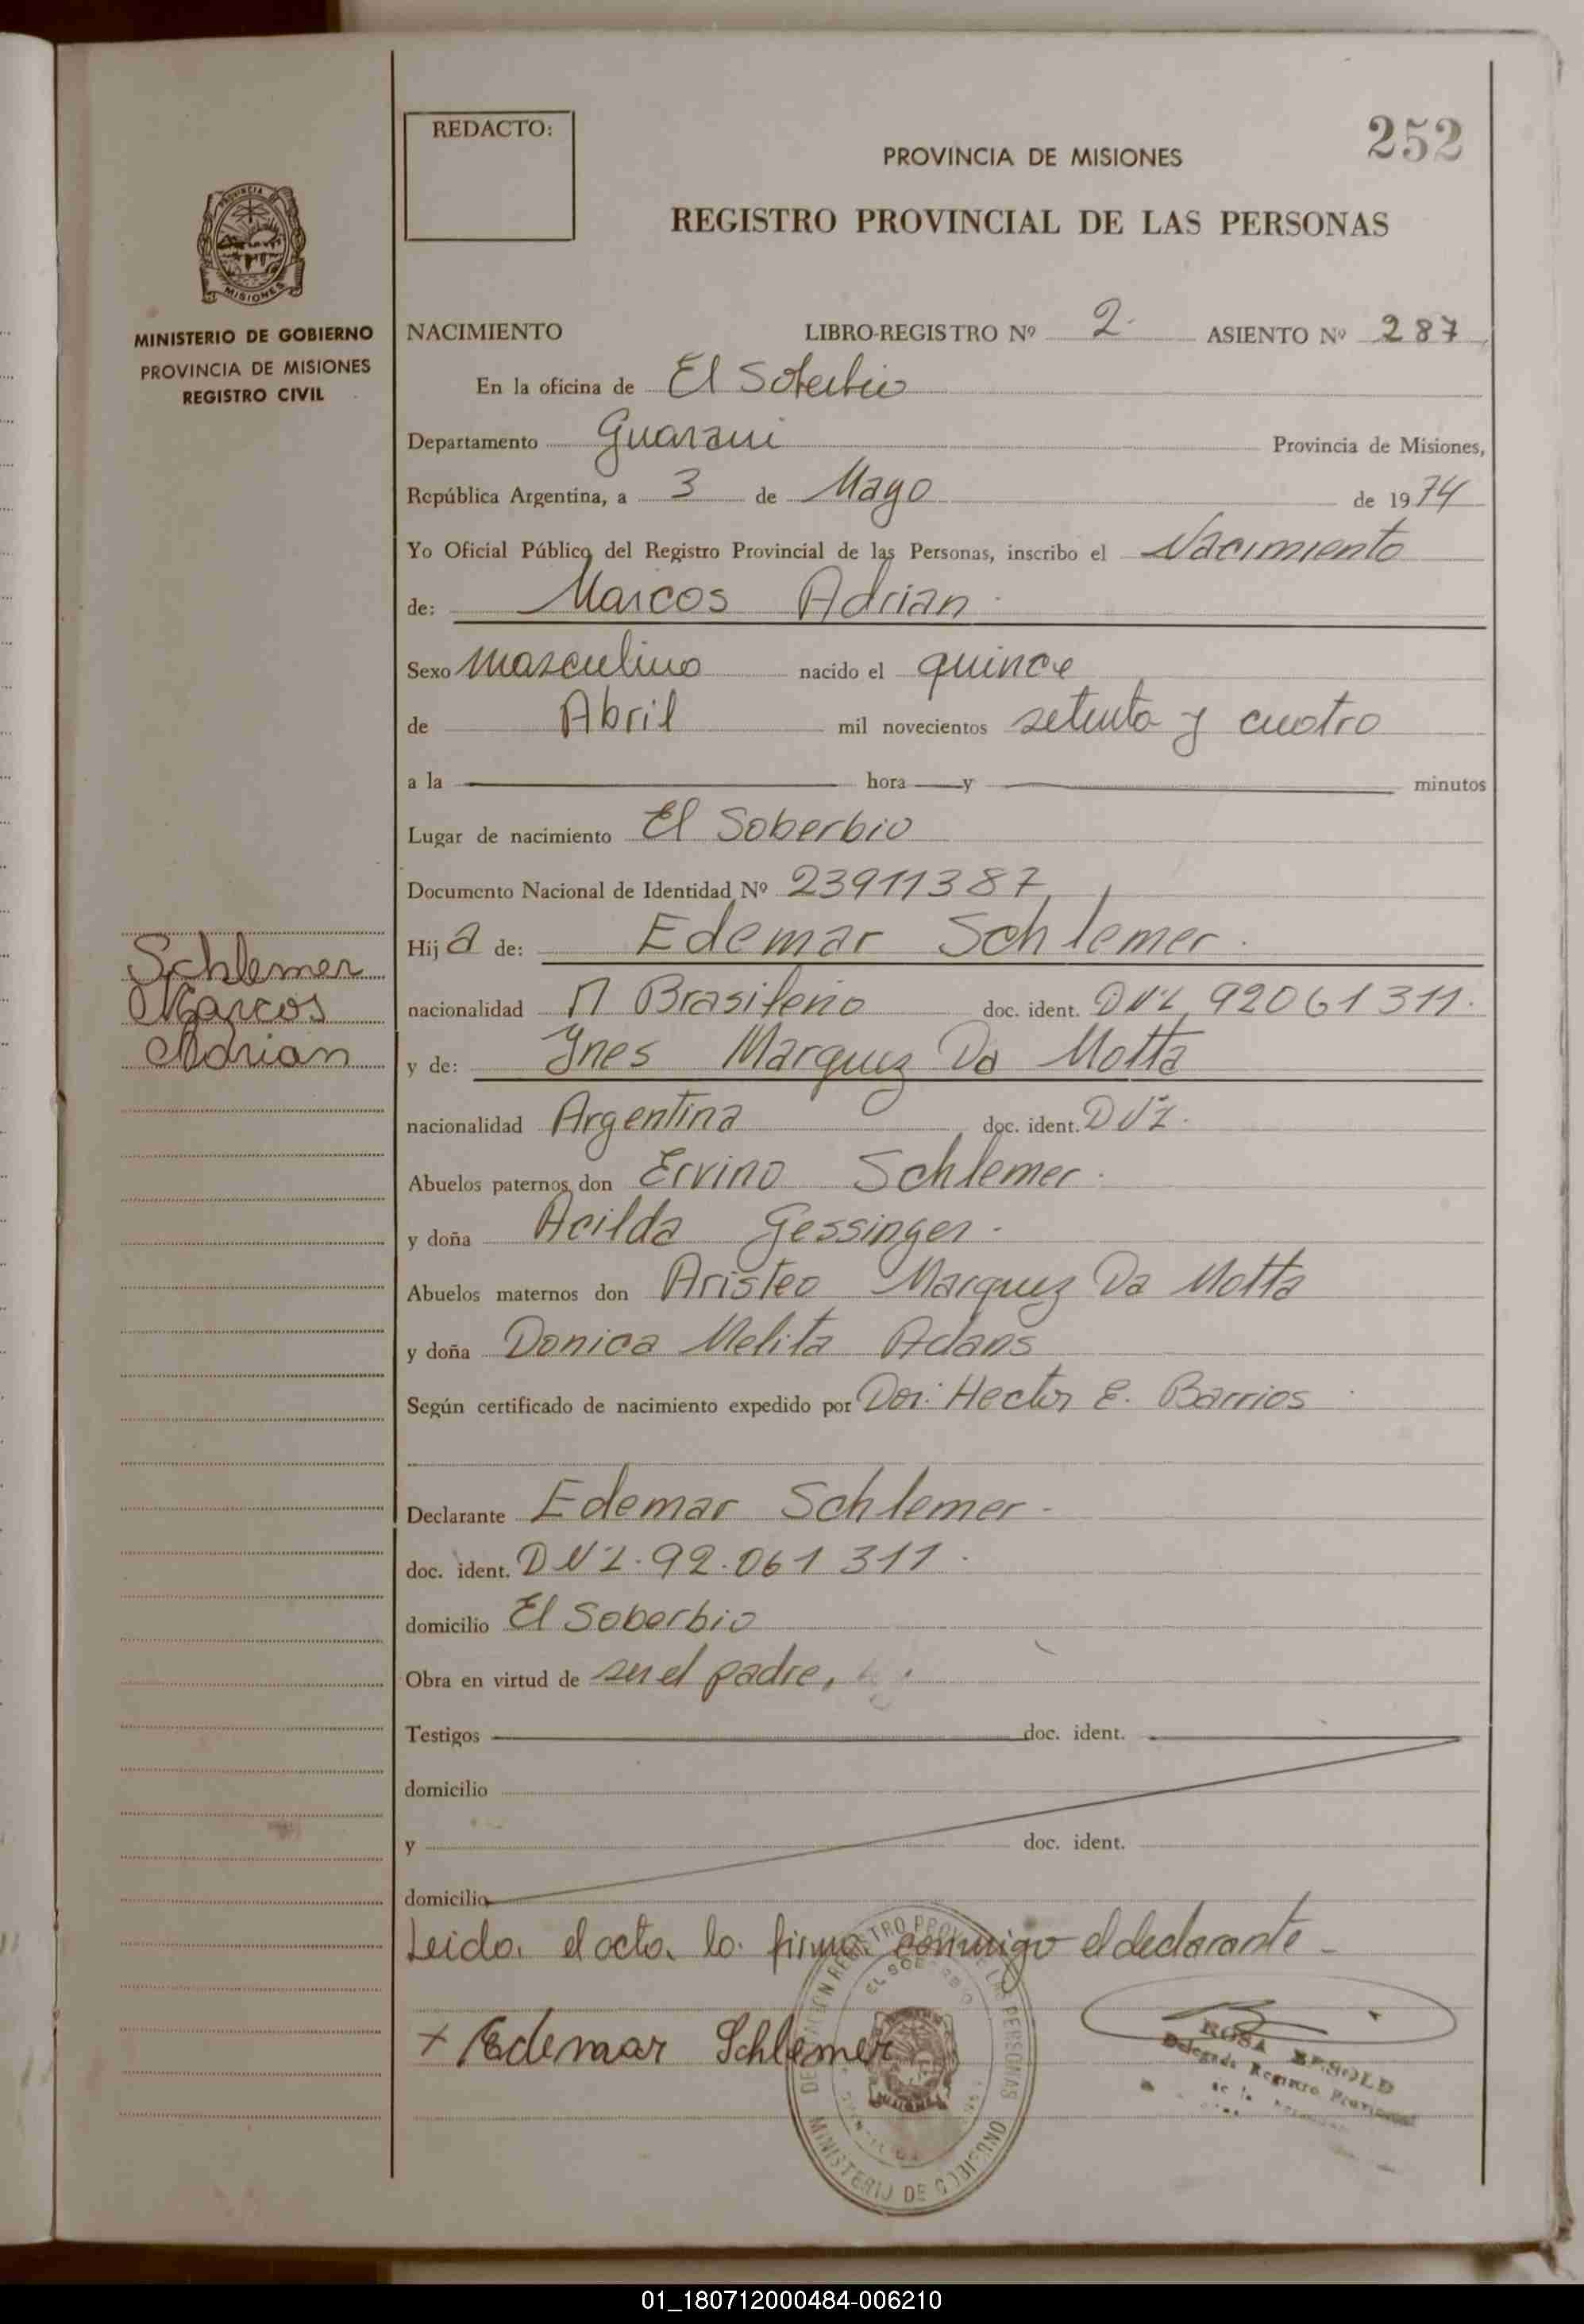 252
REDACTO:
PROVINCIA DE MISIONES
REGISTRO PROVINCIAL DE LAS PERSONAS
PROVINCIA DE
MISIONES
MINISTERIO DE GOBIERNO
PROVINCIA DE MISIONES
REGISTRO CIVIL
NACIMIENTO LIBRO-REGISTRO Nº 2. ASIENTO Nº 287
En la oficina de El Soberbio
Departamento Guarani Provincia de Misiones,
República Argentina, a 3 de Mayo de 1974
Yo Oficial Público del Registro Provincial de las Personas, inscribo el Nacimiento
de: Marcos Adrian.
Sexo Masculino nacido el quince
de Abril mil novecientos setenta y cuatro
a la hora y minutos
Lugar de nacimiento El Soberbio
Documento Nacional de Identidad Nº 23911387
Schlemer
Marcos
Adrian
Hij a de: Edemar Schlemer.
nacionalidad Brasileño doc. ident. DNI 92061311.
y de: Ynes Marquez Da Motta
nacionalidad Argentina doc. ident. DNI.
Abuelos paternos don Ervino Schlemer.
y doña Acilda Gessinger.
Abuelos maternos don Aristeo Marquez Da Motta
y doña Donica Melita Adans
Según certificado de nacimiento expedido por Hector E. Barrios
Declarante Edemar Schlemer.
doc. ident. DNI. 92.061 311.
domicilio El Soberbio
Obra en virtud de ser el padre.
Testigos doc. ident.
domicilio
y doc. ident.
domicilio
Leida el acta la firma conmigo el declarante
+ Edemar Schlemer
EL SOBERBIO
MINISTERIO DE GOBIERNO
ROSA BESOLD
Delegada Registro Provincial
de las Personas
01_180712000484-006210